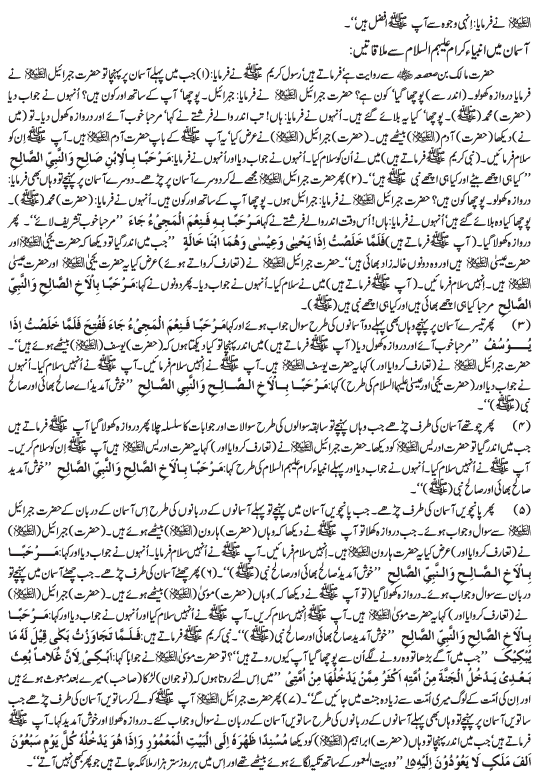 نے فرمایا: اِنہی وجوہ سے آپ ﷺ افضل ہیں‘‘۔
آسمان میں انبیاء کرام علیہم السلام سے ملاقاتیں:
حضرت مالک بن صعصعہ سے روایت ہے‘ فرماتے ہیں‘ رسول کریم ﷺ نے فرمایا: (۱) جب میں پہلے آسمان پر پہنچا تو حضرت جبرائیل نے
فرمایا دروازہ کھولو۔ (اندر سے) پوچھا گیا‘ کون ہے؟ حضرت جبرائیل نے فرمایا: جبرائیل۔ پوچھا‘ آپ کے ساتھ اور کون ہیں؟ اُنہوں نے جواب دیا
(حضرت) محمد (ﷺ)۔ پوچھا‘ کیا یہ بلائے گئے ہیں۔ اُنہوں نے فرمایا: ہاں! تب اندر والے فرشتے نے کہا‘ مرحبا خوب آئے اور دروازہ کھول دیا۔ تو (میں
نے) دیکھا (حضرت) آدم بیٹھے ہیں۔ (حضرت) جبرائیل نے عرض کیا‘ یہ آپ کے باپ حضرت آدم ہیں۔ آپ ﷺ اِن کو
سلام فرمائیں۔ (نبی کریم ﷺ فرماتے ہیں) میں نے اُن کو سلام کیا۔ اُنہوں نے جواب دیا اور اُنہوں نے فرمایا: مَرْحَبًا بِالْاِبْنِ صَالِحِ وَالنَّبِيِّ الصَّالِحِ
’’کیا ہی اچھے بیٹے اور کیا ہی اچھے نبی ہیں‘‘۔ (۲) پھر حضرت جبرائیل مجھے لے کر دوسرے آسمان پر چڑھے۔ دوسرے آسمان پر پہنچے تو وہاں بھی فرمایا:
دروازہ کھولو۔ پوچھا کون ہیں؟ حضرت جبرائیل نے فرمایا: جبرائیل ہوں۔ پوچھا گیا۔ آپ کے ساتھ اور کون ہیں؟ اُنہوں نے فرمایا: (حضرت) محمد (ﷺ)۔
پوچھا کیا وہ بلائے گئے ہیں‘ اُنہوں نے فرمایا: ہاں! اُس وقت اندر والے فرشتے نے کہا مَرْحَبًا بِهٖ فَنِعْمَ الْمَجِیْءُ جَاءَ ’’مرحبا خوب تشریف لائے‘‘۔ پھر
دروازہ کھولا گیا۔ (آپ ﷺ فرماتے ہیں) فَلَمَّا خَلَصْتُ اِذَا یَحْیٰی وَعِیْسٰی وَهُمَا ابْنَا خَالَةٍ ’’جب میں اندر گیا تو دیکھا کہ حضرت یحییٰ اور
حضرت عیسیٰ ہیں اور وہ دونوں خالہ زاد بھائی ہیں‘‘۔ حضرت جبرائیل نے (تعارف کرواتے ہوئے) عرض کیا یہ حضرت یحییٰ اور حضرت عیسیٰ
ہیں۔ اِنہیں سلام فرمائیں۔ (آپ ﷺ فرماتے ہیں) میں نے سلام کیا۔ اُنہوں نے جواب دیا۔ پھر دونوں نے کہا: مَرْحَبًا بِالْاَخِ الصَّالِحِ وَالنَّبِيِّ
الصَّالِحِ مرحبا کیا ہی اچھے بھائی ہیں اور کیا ہی اچھے نبی ہیں (ﷺ)۔
(۳) پھر تیسرے آسمان پر پہنچے وہاں بھی پہلے دو آسمانوں کی طرح سوال جواب ہوئے اور کہا مَرْحَبًا فَنِعْمَ الْمَجِیْءُ جَاءَ فَفُتِحَ فَلَمَّا خَلَصْتُ اِذَا
یُوْسُفُ ’’مرحبا خوب آئے اور دروازہ کھول دیا (آپ ﷺ فرماتے ہیں) میں اندر پہنچا تو کیا دیکھتا ہوں کہ (حضرت) یوسف بیٹھے ہوئے ہیں‘‘۔
حضرت جبرائیل نے (تعارف کروایا اور) کہا یہ حضرت یوسف ہیں۔ آپ ﷺ اِنہیں سلام فرمائیں۔ آپ ﷺ نے اُنہیں سلام کیا۔ اُنہوں
نے جواب دیا اور (حضرت یحییٰ اور عیسیٰ علیہما السلام کی طرح) کہا: مَرْحَبًا بِالْاَخِ الصَّالِحِ وَالنَّبِيِّ الصَّالِحِ ’’خوش آمدید‘ اے صالح بھائی اور صالح
نبی (ﷺ)‘‘۔
(۴) پھر چوتھے آسمان کی طرف چڑھے۔ جب وہاں پہنچے تو سابقہ سوالوں کی طرح سوالات اور جوابات کا سلسلہ چلا پھر دروازہ کھولا گیا آپ ﷺ فرماتے ہیں
جب میں اندر گیا تو حضرت ادریس کو دیکھا۔ حضرت جبرائیل نے (تعارف کروایا اور) کہا: ادریس ہیں آپ ﷺ اِن کو سلام کریں۔
آپ ﷺ نے اُنہیں سلام کیا۔ اُنہوں نے جواب دیا اور پہلے انبیاء کرام علیہم السلام کی طرح کہا: مَرْحَبًا بِالْاَخِ الصَّالِحِ وَالنَّبِيِّ الصَّالِحِ ’’خوش آمدید
صالح بھائی اور صالح نبی (ﷺ)‘‘۔
(۵) پھر پانچویں آسمان کی طرف چڑھے۔ جب پانچویں آسمان میں پہنچے تو پہلے آسمانوں کے دربانوں کی طرح اِس آسمان کے دربان کے حضرت جبرائیل
سے سوال و جواب ہوئے۔ جب دروازہ کھلا تو آپ ﷺ نے دیکھا کہ وہاں (حضرت) ہارون بیٹھے ہوئے ہیں۔ (حضرت) جبرائیل
نے (تعارف کروایا اور) عرض کیا یہ حضرت ہارون ہیں۔ اِنہیں سلام فرمائیں۔ آپ ﷺ نے اُنہیں سلام فرمایا۔ اُنہوں نے جواب دیا اور کہا: مَرْحَبًا
بِالْاَخِ الصَّالِحِ وَالنَّبِيِّ الصَّالِحِ ’’خوش آمدید‘ صالح بھائی اور صالح نبی (ﷺ)‘‘۔ (۶) پھر چھٹے آسمان کی طرف چڑھے۔ جب چھٹے آسمان میں پہنچے تو
دربان سے سوال و جواب ہوئے۔ دروازہ کھولا گیا تو آپ ﷺ نے دیکھا کہ وہاں (حضرت) موسیٰ بیٹھے ہوئے ہیں۔ (حضرت) جبرائیل
نے (تعارف کروایا اور) کہا یہ حضرت موسیٰ ہیں۔ آپ ﷺ اِنہیں سلام کریں۔ آپ ﷺ نے اُنہیں سلام کیا اور اُنہوں نے جواب دیا اور کہا: مَرْحَبًا
بِالْاَخِ الصَّالِحِ وَالنَّبِيِّ الصَّالِحِ ’’خوش آمدید‘ صالح بھائی اور صالح نبی (ﷺ)‘‘۔ نبی کریم ﷺ فرماتے ہیں: فَلَمَّا تَجَاوَزْتُ بَکٰی قِیْلَ لَهٗ مَا
یُبْکِیْکَ ’’جب میں آگے بڑھا تو وہ رونے لگے‘ اُن سے پوچھا گیا آپ کیوں روتے ہیں؟‘‘ تو حضرت موسیٰ نے جواباً کہا: اَبْکِیْ لِاَنَّ غُلَامًا بُعِثَ
بَعْدِیْ یَدْخُلُ الْجَنَّةَ مِنْ اُمَّتِهٖ اَکْثَرُ مِمَّنْ یَدْخُلُهَا مِنْ اُمَّتِیْ ’’میں اِس لئے روتا ہوں کہ (نوجوان) لڑکا (صاحب) میرے بعد مبعوث ہوئے ہیں
اور ان کی اُمت کے لوگ میری اُمت سے زیادہ جنت میں جائیں گے‘‘۔ (۷) پھر حضرت جبرائیل آپ ﷺ کو لے کر ساتویں آسمان کی طرف چڑھے جب
ساتویں آسمان پر پہنچے تو وہاں بھی پہلے آسمانوں کے دربانوں کی طرح ساتویں آسمان کے دربان نے سوال و جواب کئے۔ دروازہ کھولا اور خوش آمدید کہا۔ آپ ﷺ
فرماتے ہیں‘ میں جب اندر پہنچا تو وہاں (حضرت) ابراہیم (ﷺ) کو دیکھا مُسْنِدًا ظَهْرَهٗ اِلَی الْبَیْتِ الْمَعْمُوْرِ وَاِذَا هُوَ یَدْخُلُهٗ کُلَّ یَوْمٍ سَبْعُوْنَ
اَلْفَ مَلَکٍ لَا یَعُوْدُوْنَ اِلَیْهِ ’’وہ بیت المعمور کے ساتھ تکیہ لگائے ہوئے بیٹھے تھے اور اِس میں ہر روز ستر ہزار ملائکہ جاتے ہیں جو پھر نہیں بھی آتے‘‘۔